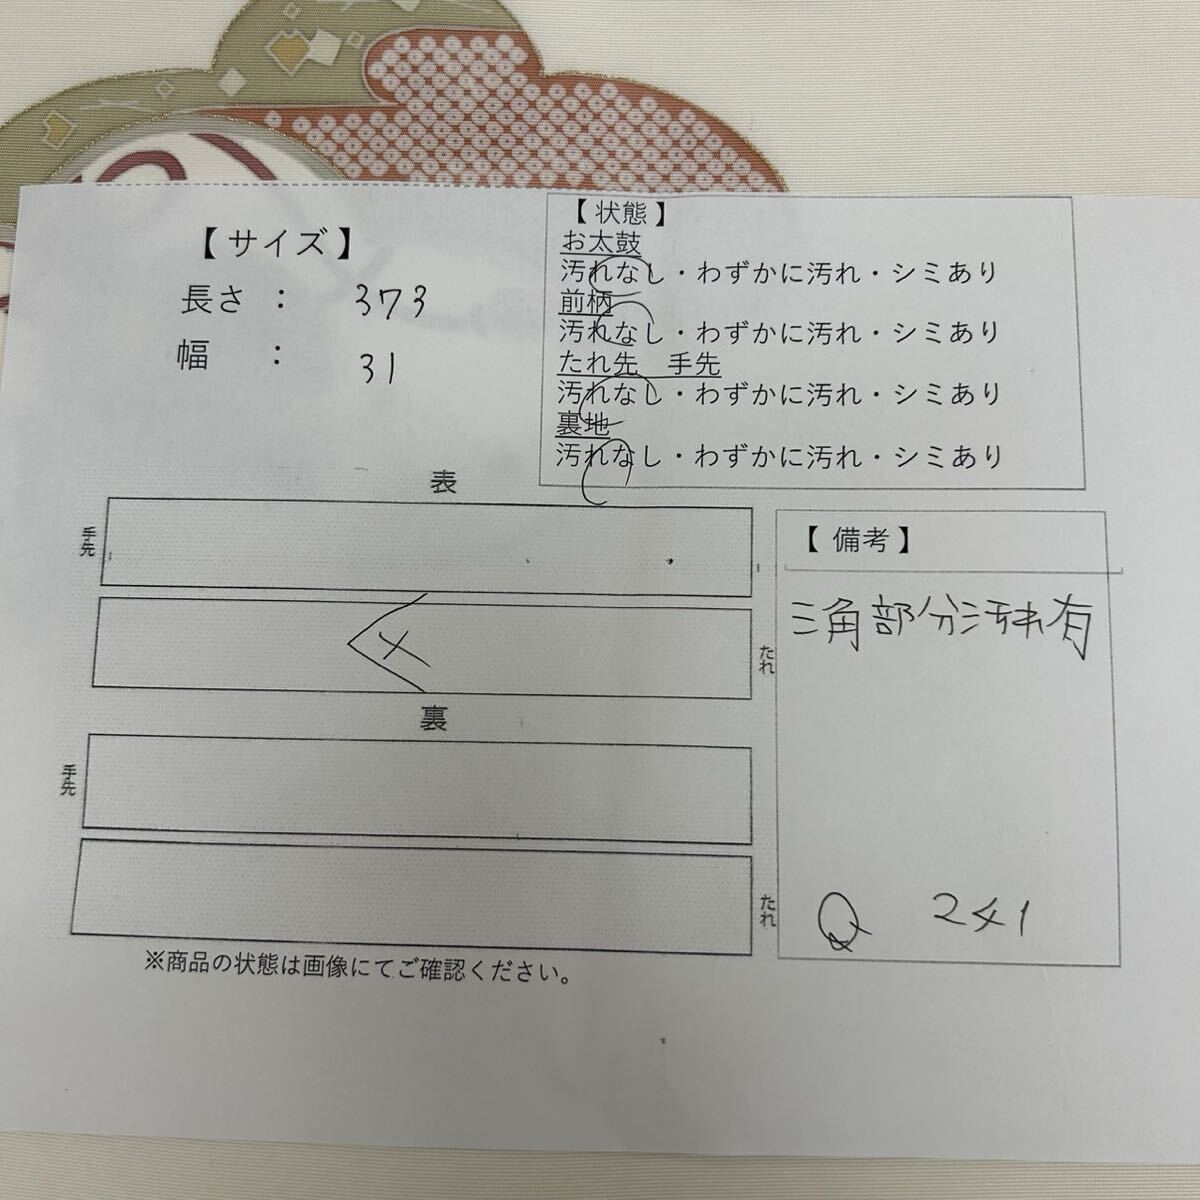 【 サイズ 】
長さ ： 373
幅 ： 31
【 状態 】
お太鼓
汚れなし・わずかに汚れ・シミあり
前柄
汚れなし・わずかに汚れ・シミあり
たれ先 手先
汚れなし・わずかに汚れ・シミあり
裏地
汚れなし・わずかに汚れ・シミあり
表
手先
たれ
裏
手先
たれ
※商品の状態は画像にてご確認ください。
【 備考 】
三角部分汚れ有
Q 241